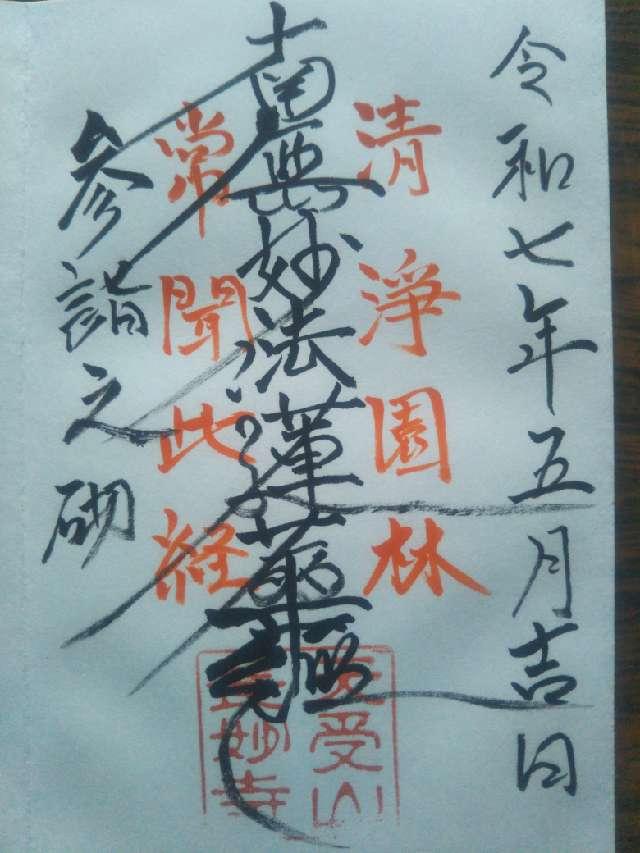 令和七年五月吉日
清浄園林
南無妙法蓮華経
常聞此経
参詣之砌
受山
妙寺